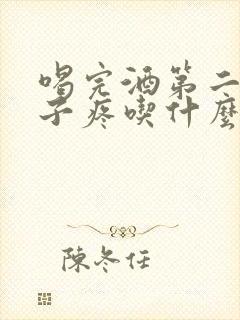 喝完酒第二
子疼喫什麽
陳冬任